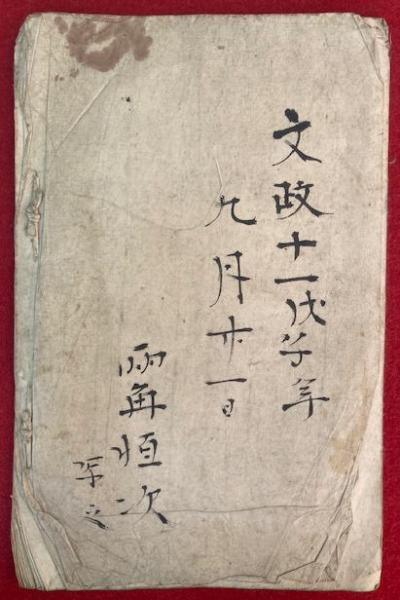 文政十一戊子年
九月廿一日
兩角恒次
之